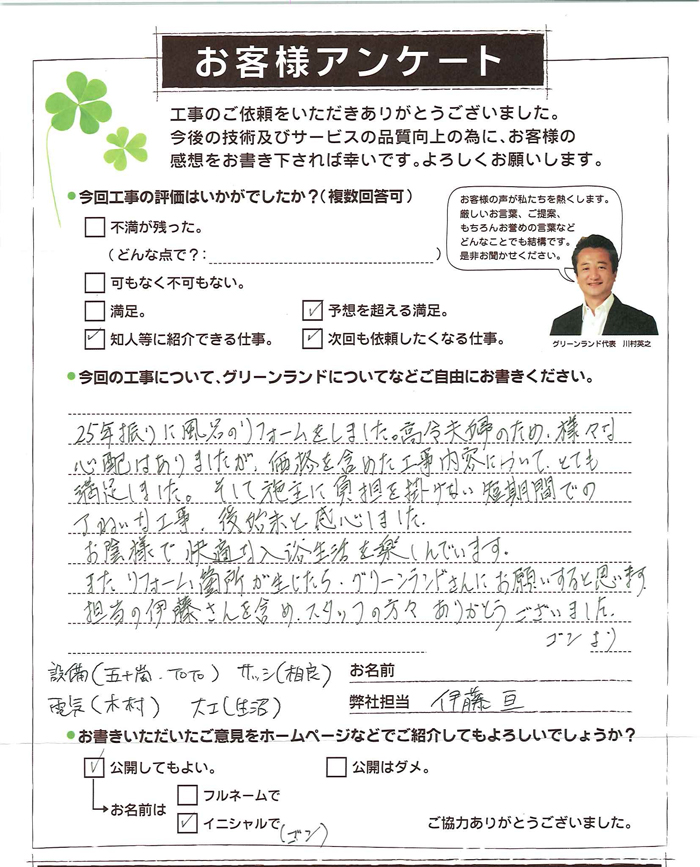 お客様アンケート
工事のご依頼をいただきありがとうございました。
今後の技術及びサービスの品質向上の為に、お客様の
感想をお書き下されば幸いです。よろしくお願いします。
●今回工事の評価はいかがでしたか?(複数回答可)
不満が残った。
(どんな点で?: )
可もなく不可もない。
満足。
予想を超える満足。
知人等に紹介できる仕事。
次回も依頼したくなる仕事。
お客様の声が私たちを熱くします。
厳しいお言葉、ご提案、
もちろんお誉めの言葉など
どんなことでも結構です。
是非お聞かせください。
グリーンランド代表 川村英之
●今回の工事について、グリーンランドについてなどご自由にお書きください。
25年振りに風呂のリフォームをしました。高令夫婦のため、様々な
心配はありましたが、価格を含めた工事内容について、とても
満足しました。そして施主に負担を掛けない短期間での
ていねいな工事、後始末と感心しました。
お陰様で快適な入浴生活を楽しんでいます。
また、リフォーム箇所が生じたら、グリーンランドさんにお願いすると思います
担当の伊藤さんを含め、スタッフの方々ありがとうございました。
ゴンより
設備(五十嵐・TOTO) サッシ(相良)
電気(木村) 大工(生沼)
お名前
弊社担当 伊藤 亘
●お書きいただいたご意見をホームページなどでご紹介してもよろしいでしょうか?
公開してもよい。
公開はダメ。
お名前は
フルネームで
イニシャルで(ゴン)
ご協力ありがとうございました。